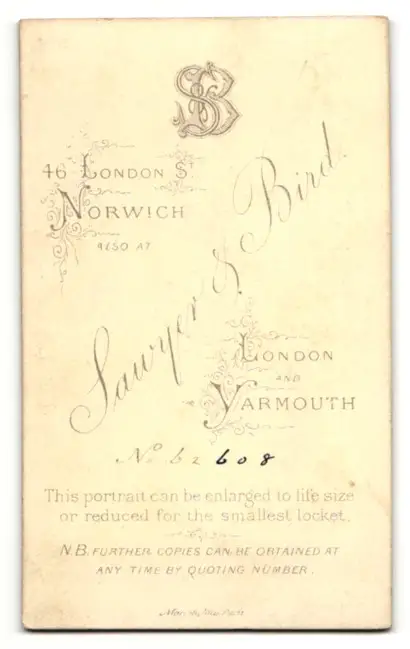 SB
46 LONDON ST
NORWICH
ALSO AT
Sawyer & Bird.
LONDON
AND
YARMOUTH
No 62608
This portrait can be enlarged to life size
or reduced for the smallest locket.
N.B. FURTHER COPIES CAN BE OBTAINED AT
ANY TIME BY QUOTING NUMBER.